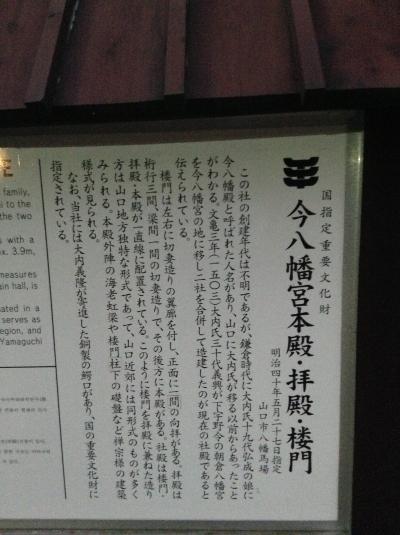 国指定重要文化財
今八幡宮本殿・拝殿・楼門
明治四十年五月二十七日指定
山口市八幡馬場
この社の創建年代は不明であるが、鎌倉時代に大内氏十九代弘成の娘に
今八幡殿と呼ばれた人名があり、山口に大内氏が移る以前からあったこと
がわかる。文亀三年(一五〇三)大内氏三十代義興が下宇野令の朝倉八幡宮
を今八幡宮の地に移し二社を合併して造建したのが現在の社殿であると
伝えられている。
楼門は左右に切妻造りの翼廊を付し、正面に一間の向拝がある。拝殿は
桁行三間、梁間一間の切妻造りで、その後方に本殿がある。社殿は楼門・
拝殿・本殿が一直線に配置されている。このように楼門を拝殿に兼ねた造り
方は山口地方独特な形式であって、山口近郊には同形式のものが多く
みられる。本殿外陣の海老虹梁や楼門柱下の礎盤など禅宗様の建築
様式が見られる。
なお、当社には大内義隆が寄進した銅製の鰐口があり、国の重要文化財に
指定されている。
family,
i to the
the two
s with a
x. 3.9m,
measures
in hall, is
ated in a
serves as
egion, and
Yamaguchi